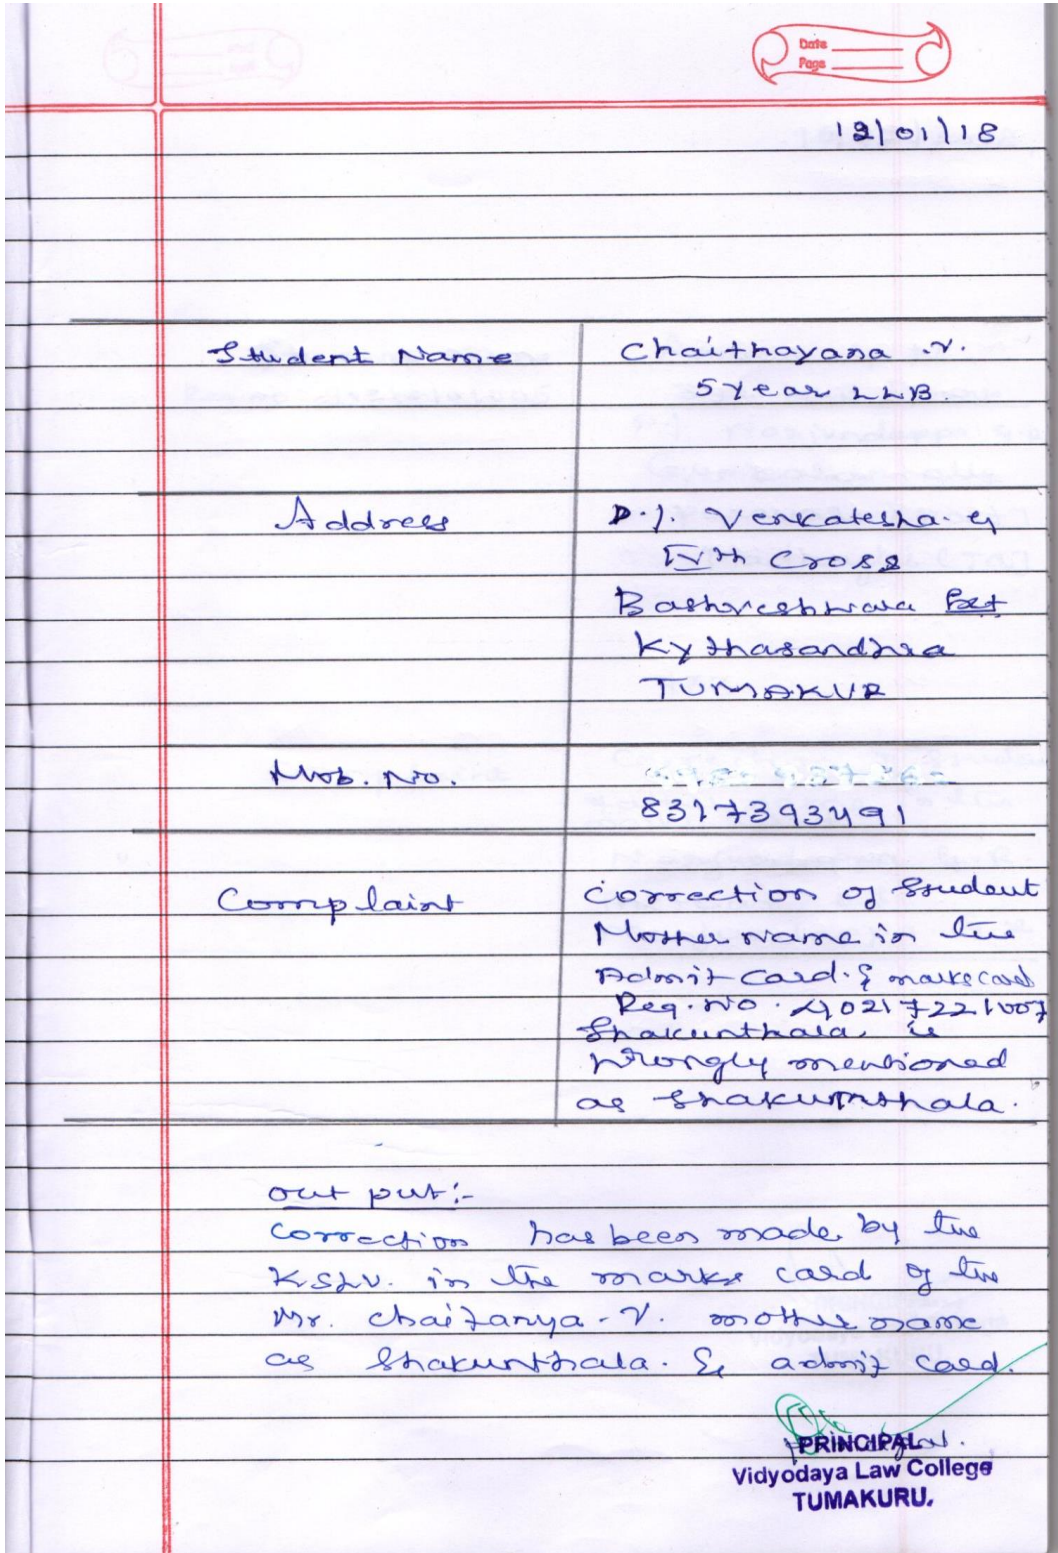 Date
Page
12/01/18
Student Name
Chaithayana .V.
5 Year LLB.
Address
D./. Venkatesha. G
IVth Cross
Bashveshwara Bet
Kythasandhra
TUMAKUR
Mob. No.
8317393491
Complaint
correction of Student
Mother name in the
Admit card. & marks card
Reg. No. 40217221007
Shakunthala. is
wrongly mentioned
as Shakumthala.
out put:-
Correction has been made by the
KSLU. in the marks card of the
Mr. Chaitanya - V. mother name
as Shakunthala. & admit card.
PRINCIPAL
Vidyodaya Law College
TUMAKURU.